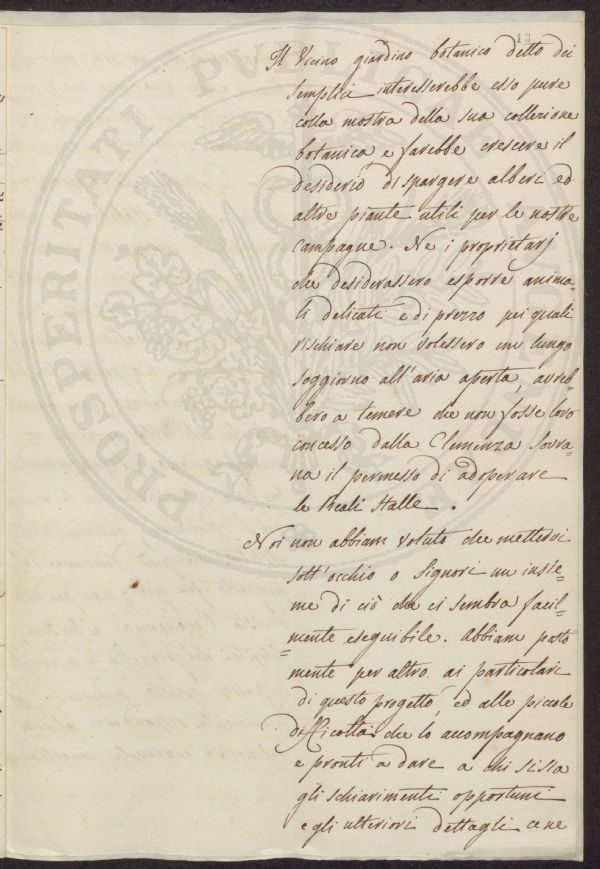 13
Il Vicino giardino botanico detto dei
Semplici interesserebbe esso pure
colla mostra della sua collezione
botanica e farebbe crescere il
desiderio di spargere alberi ed
altre piante utili per le nostre
Campagne. Ne i proprietarj
che desiderassero esporre anima-
li delicati e di prezzo pei quali
rischiare non volessero un lungo
soggiorno all'aria aperta, avreb-
bero a temere che non fosse loro
concesso dalla Clemenza Sovra-
na il permesso di adoperare
le Reali Stalle.
Noi non abbiam voluto che mettervi
sott'occhio o Signori un insie=
me di ciò che ci sembra facil=
=mente eseguibile. Abbiam posto
mente per altro ai particolari
di questo progetto, ed alle piccole
difficoltà che lo accompagnano
e pronti a dare a chi si sia
gli schiarimenti opportuni
e gli ulteriori dettagli ce ne
PROSPERITATI PUBLICAE